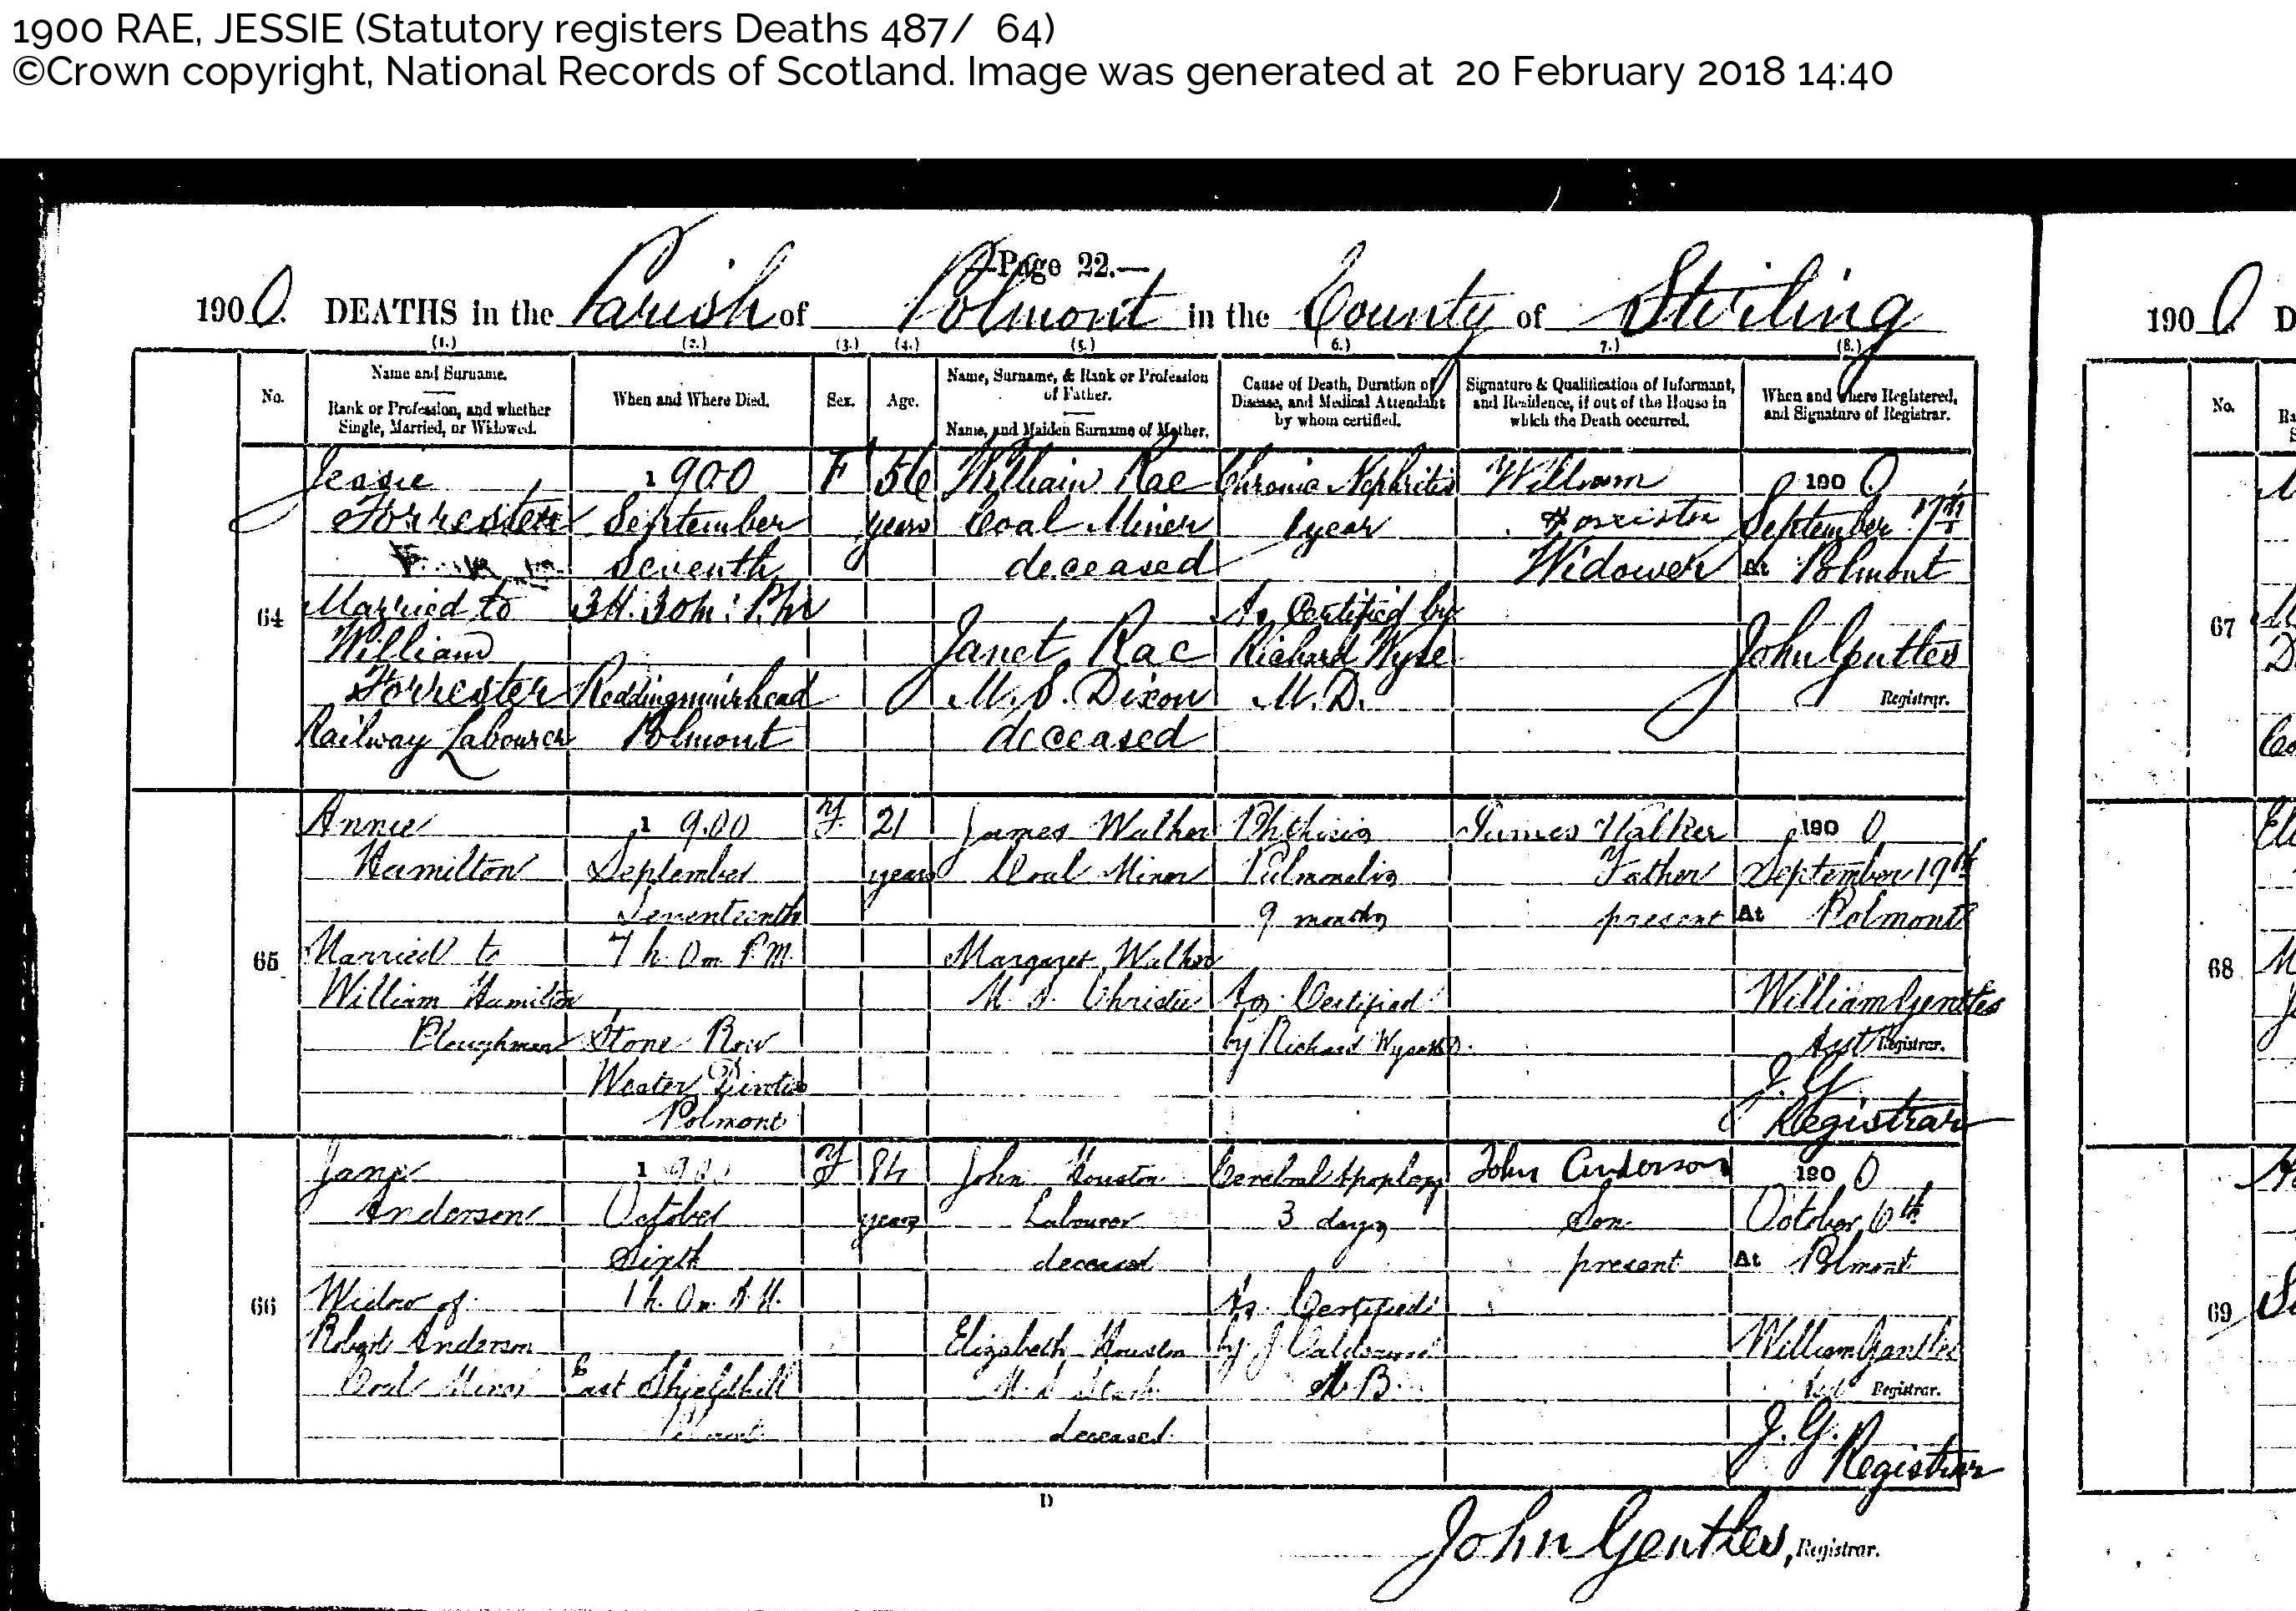 1900 RAE, JESSIE (Statutory registers Deaths 487/ 64)
©Crown copyright, National Records of Scotland. Image was generated at 20 February 2018 14:40
—Page 22.—
1900. DEATHS in the Parish of Polmont in the County of Stirling
190 0 D
(1.) (2.) (3.) (4.) (5.) (6.) 7.) (8.)
No.
Name and Surname.
Rank or Profession, and whether
Single, Married, or Widowed.
When and Where Died.
Sex.
Age.
Name, Surname, & Rank or Profession
of Father.
Name, and Maiden Surname of Mother.
Cause of Death, Duration of
Disease, and Medical Attendant
by whom certified.
Signature & Qualification of Informant,
and Residence, if out of the House in
which the Death occurred.
When and where Registered,
and Signature of Registrar.
No.
64
Jessie
Forrester
Married to
William
Forrester
Railway Labourer
1900
September
Seventh
3H. 30m. P.M
Reddingmuirhead
Polmont
F
56
years
William Rae
Coal Miner
deceased
Janet Rae
M.S. Dixon
deceased
Chronic Nephritis
1 year
As Certified by
Richard Wyse
M.D.
William
Forrester
Widower
1900
September
At Polmont
John Gentles
Registrar.
67
65
Annie
Hamilton
Married to
William Hamilton
Ploughman
1900
September
Seventeenth
7 h. 0m P.M.
Stone Row
Wester
Polmont
F.
21
years
James Walker
Coal Miner
Margaret Walker
M.S. Christie
Phthisis
Pulmonalis
9 months
As Certified
by Richard Wyse M.D.
James Walker
Father
present
1900
September 19th
At Polmont
William Gentles
Ast Registrar.
J. G.
Registrar
68
66
Jane
Anderson
Widow of
Robert Anderson
Coal Miner
1900
October
Sixth
1 h. 0m A.M.
East Shieldhill
Polmont
F
84
years
John Houston
Labourer
deceased
Elizabeth Houston
M.S.
deceased
Cerebral Apoplexy
3 days
As Certified
by J
M.B.
John Anderson
Son
present
1900
October 6th
At Polmont
William Gentles
Ast Registrar.
J. G.
Registrar
69
D
John Gentles, Registrar.